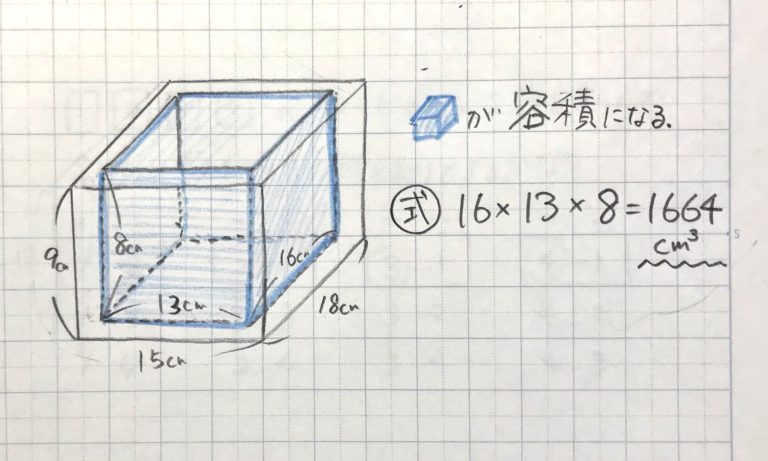 が容積になる.
式 16×13×8=1664
cm³
9cm
8cm
16cm
13cm
18cm
15cm
5